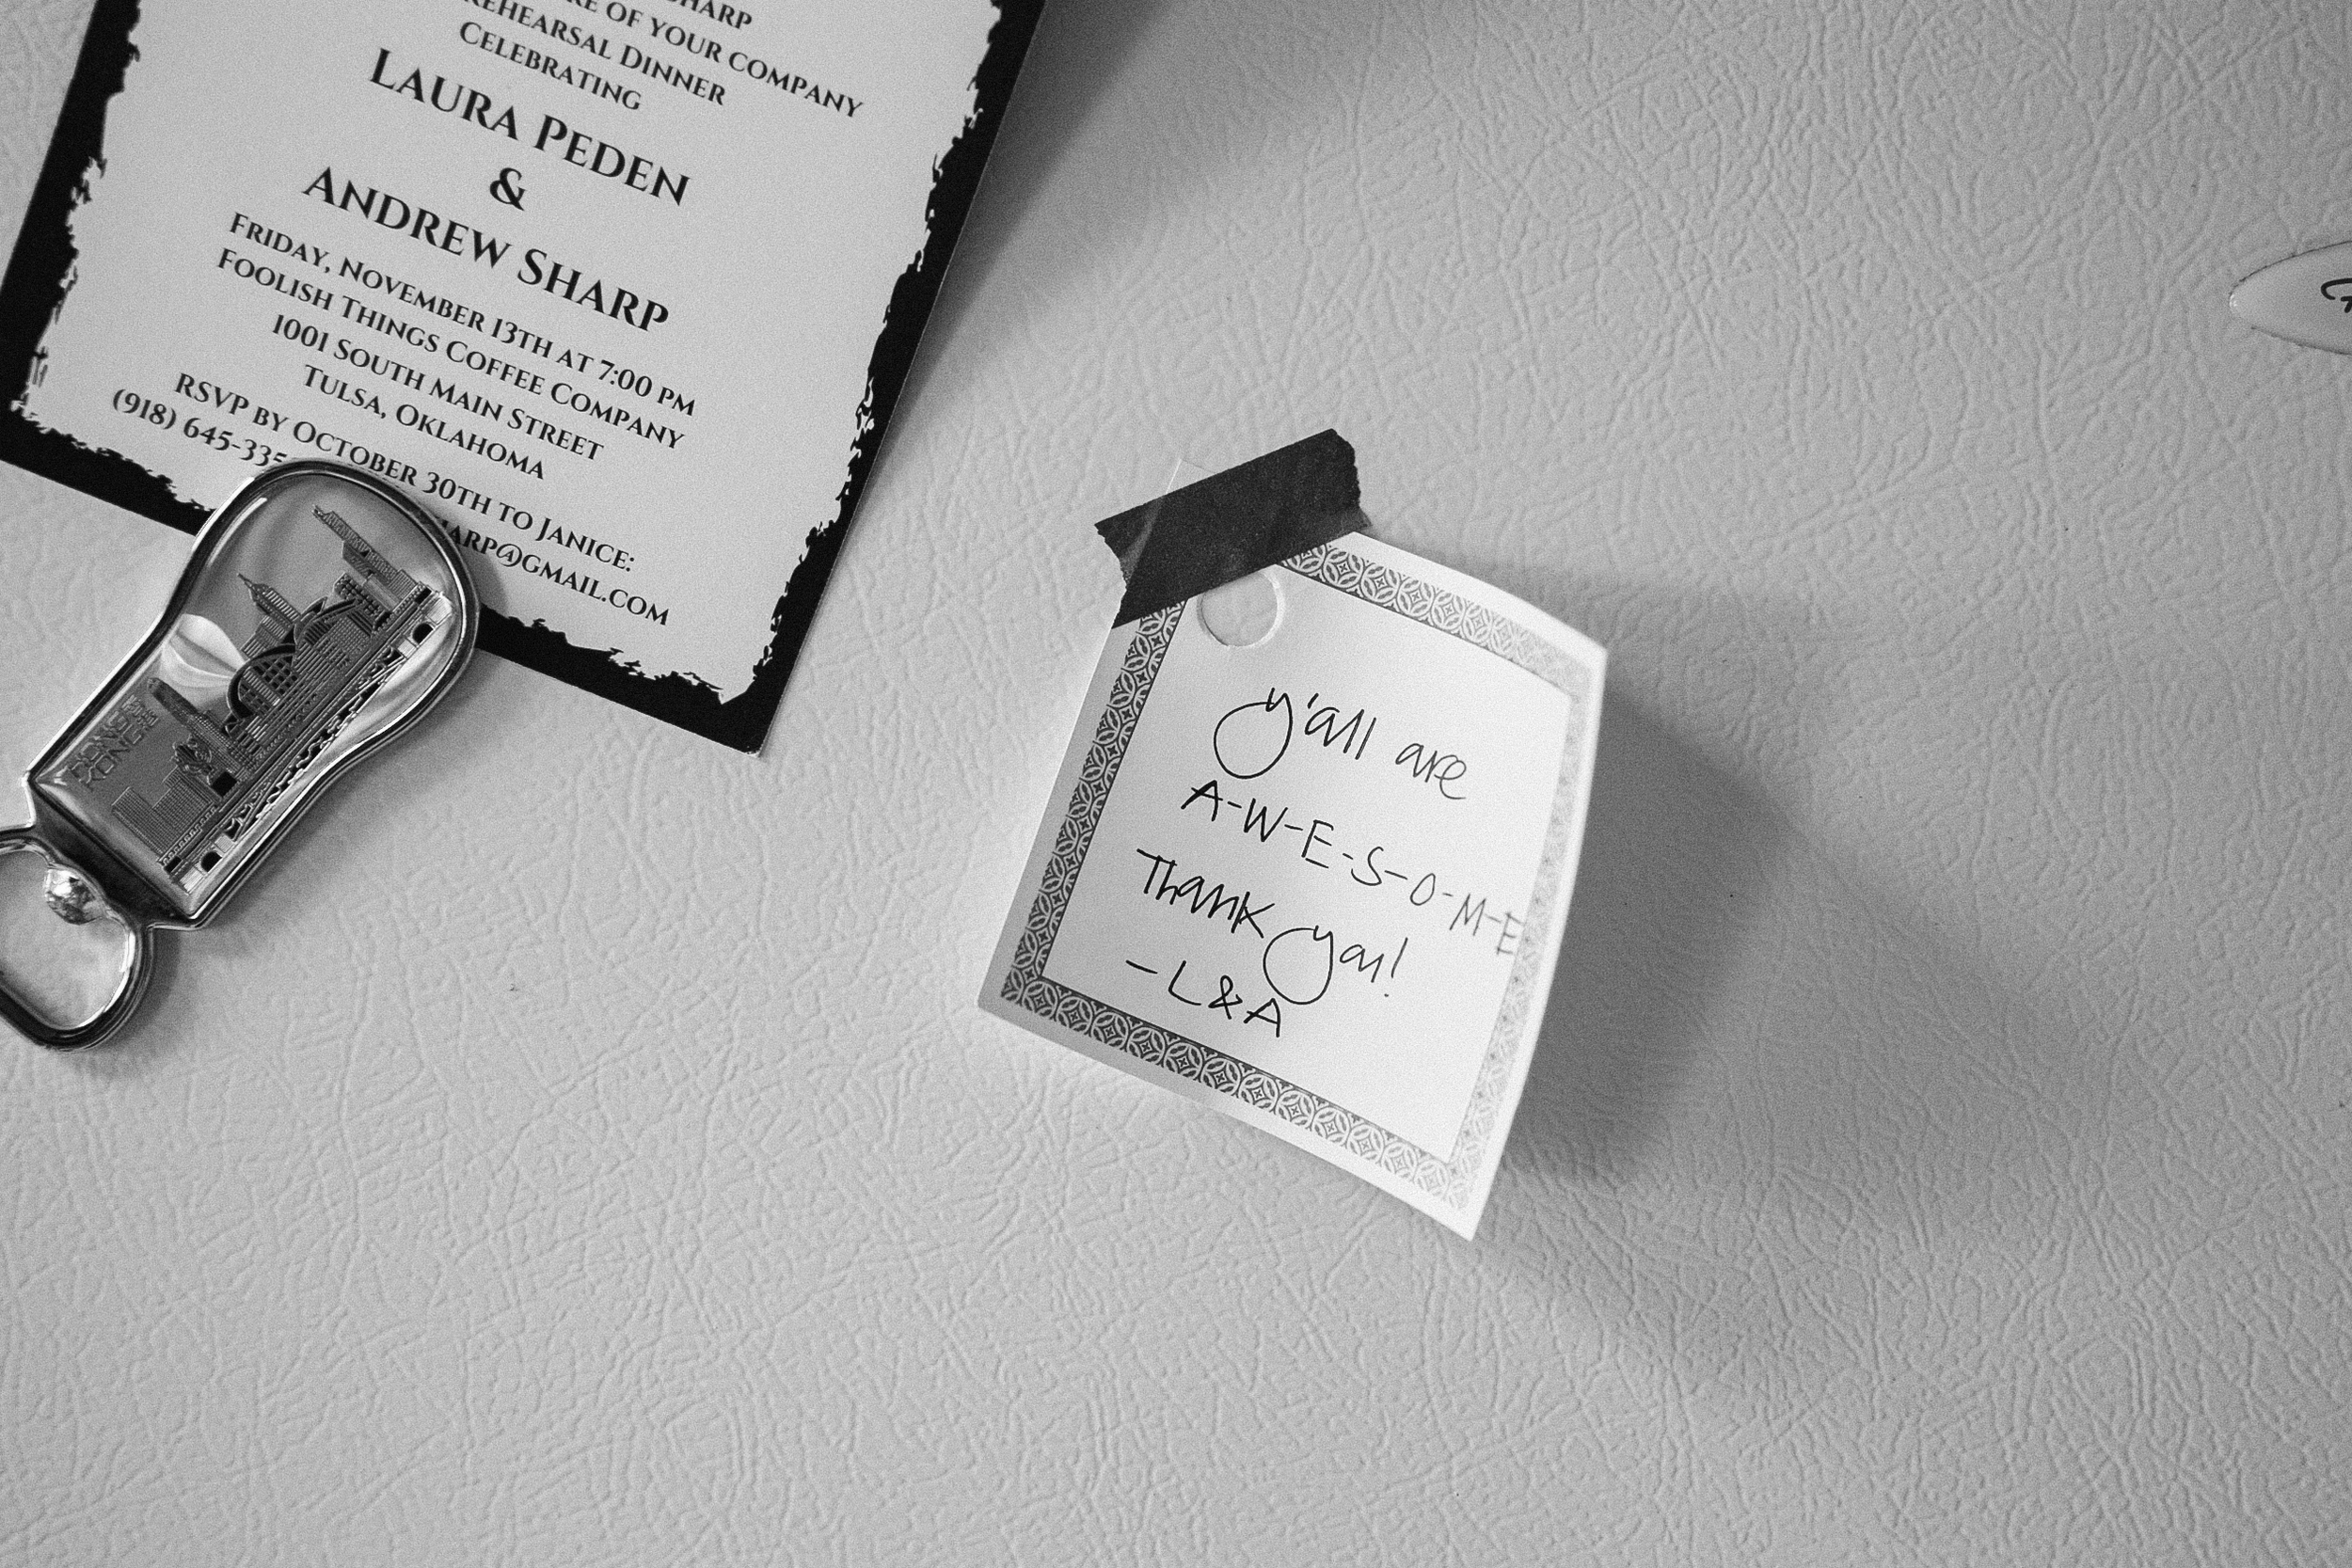 SHARP
RE OF YOUR COMPANY
REHEARSAL DINNER
CELEBRATING
LAURA PEDEN
&
ANDREW SHARP
FRIDAY, NOVEMBER 13TH AT 7:00 PM
FOOLISH THINGS COFFEE COMPANY
1001 SOUTH MAIN STREET
TULSA, OKLAHOMA
RSVP BY OCTOBER 30TH TO JANICE:
(918) 645-335
ARP@GMAIL.COM
HONG
KONG
y'all are
A-W-E-S-O-M-E
Thank you!
-L&A